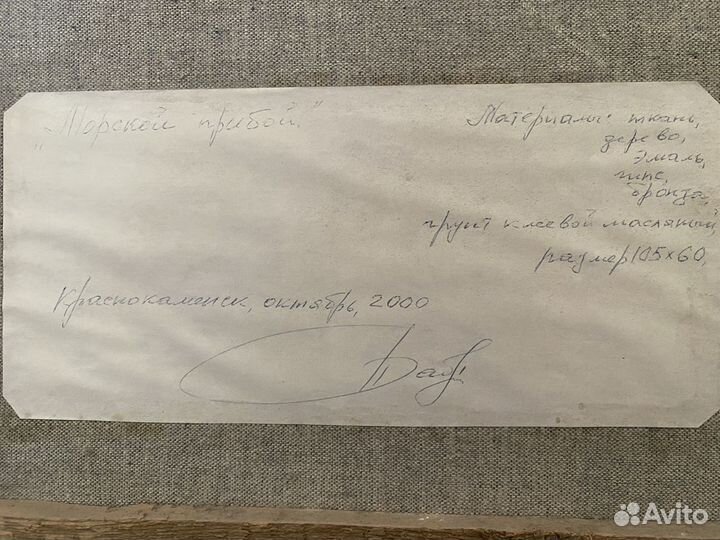 „Морской прибой."
Материалы: ткань,
дерево,
эмаль,
гипс,
бронза,
грунт клеевой масляный
размер 105×60,
Краснокаменск, октябрь, 2000
Avito